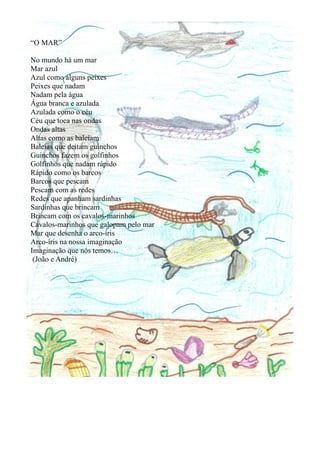 “O MAR”
No mundo há um mar
Mar azul
Azul como alguns peixes
Peixes que nadam
Nadam pela água
Água branca e azulada
Azulada como o céu
Céu que toca nas ondas
Ondas altas
Altas como as baleiam
Baleias que deitam guinchos
Guinchos fazem os golfinhos
Golfinhos que nadam rápido
Rápido como os barcos
Barcos que pescam
Pescam com as redes
Redes que apanham sardinhas
Sardinhas que brincam
Brincam com os cavalos-marinhos
Cavalos-marinhos que galopam pelo mar
Mar que desenha o arco-íris
Arco-íris na nossa imaginação
Imaginação que nós temos…
(João e André)